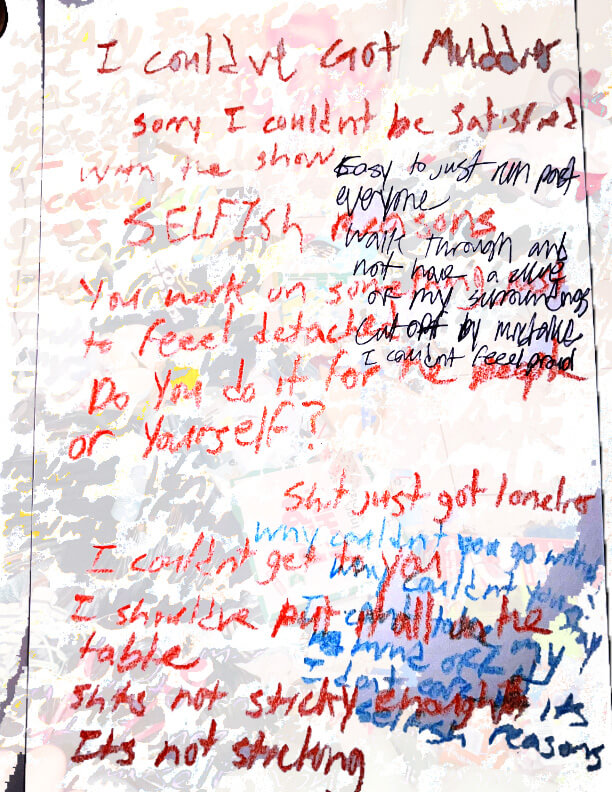 I could've Got Muddier
sorry I couldn't be satisfied
with the show
SELFISH reasons
You work on something just
to feeel detached
Do You do it for the people
or Yourself?
Shit just got lonelier
I couldn't get to you
I should've put it all on the
table
shits not sticky enough
Its not sticking
Easy to just run past
everyone
walk through and
not have a clue
of my surroundings
Cut off by mistake
I couldnt feeel proud
why couldn't you go with
why couldn't you
I
my
I dont care its
selfish reasons